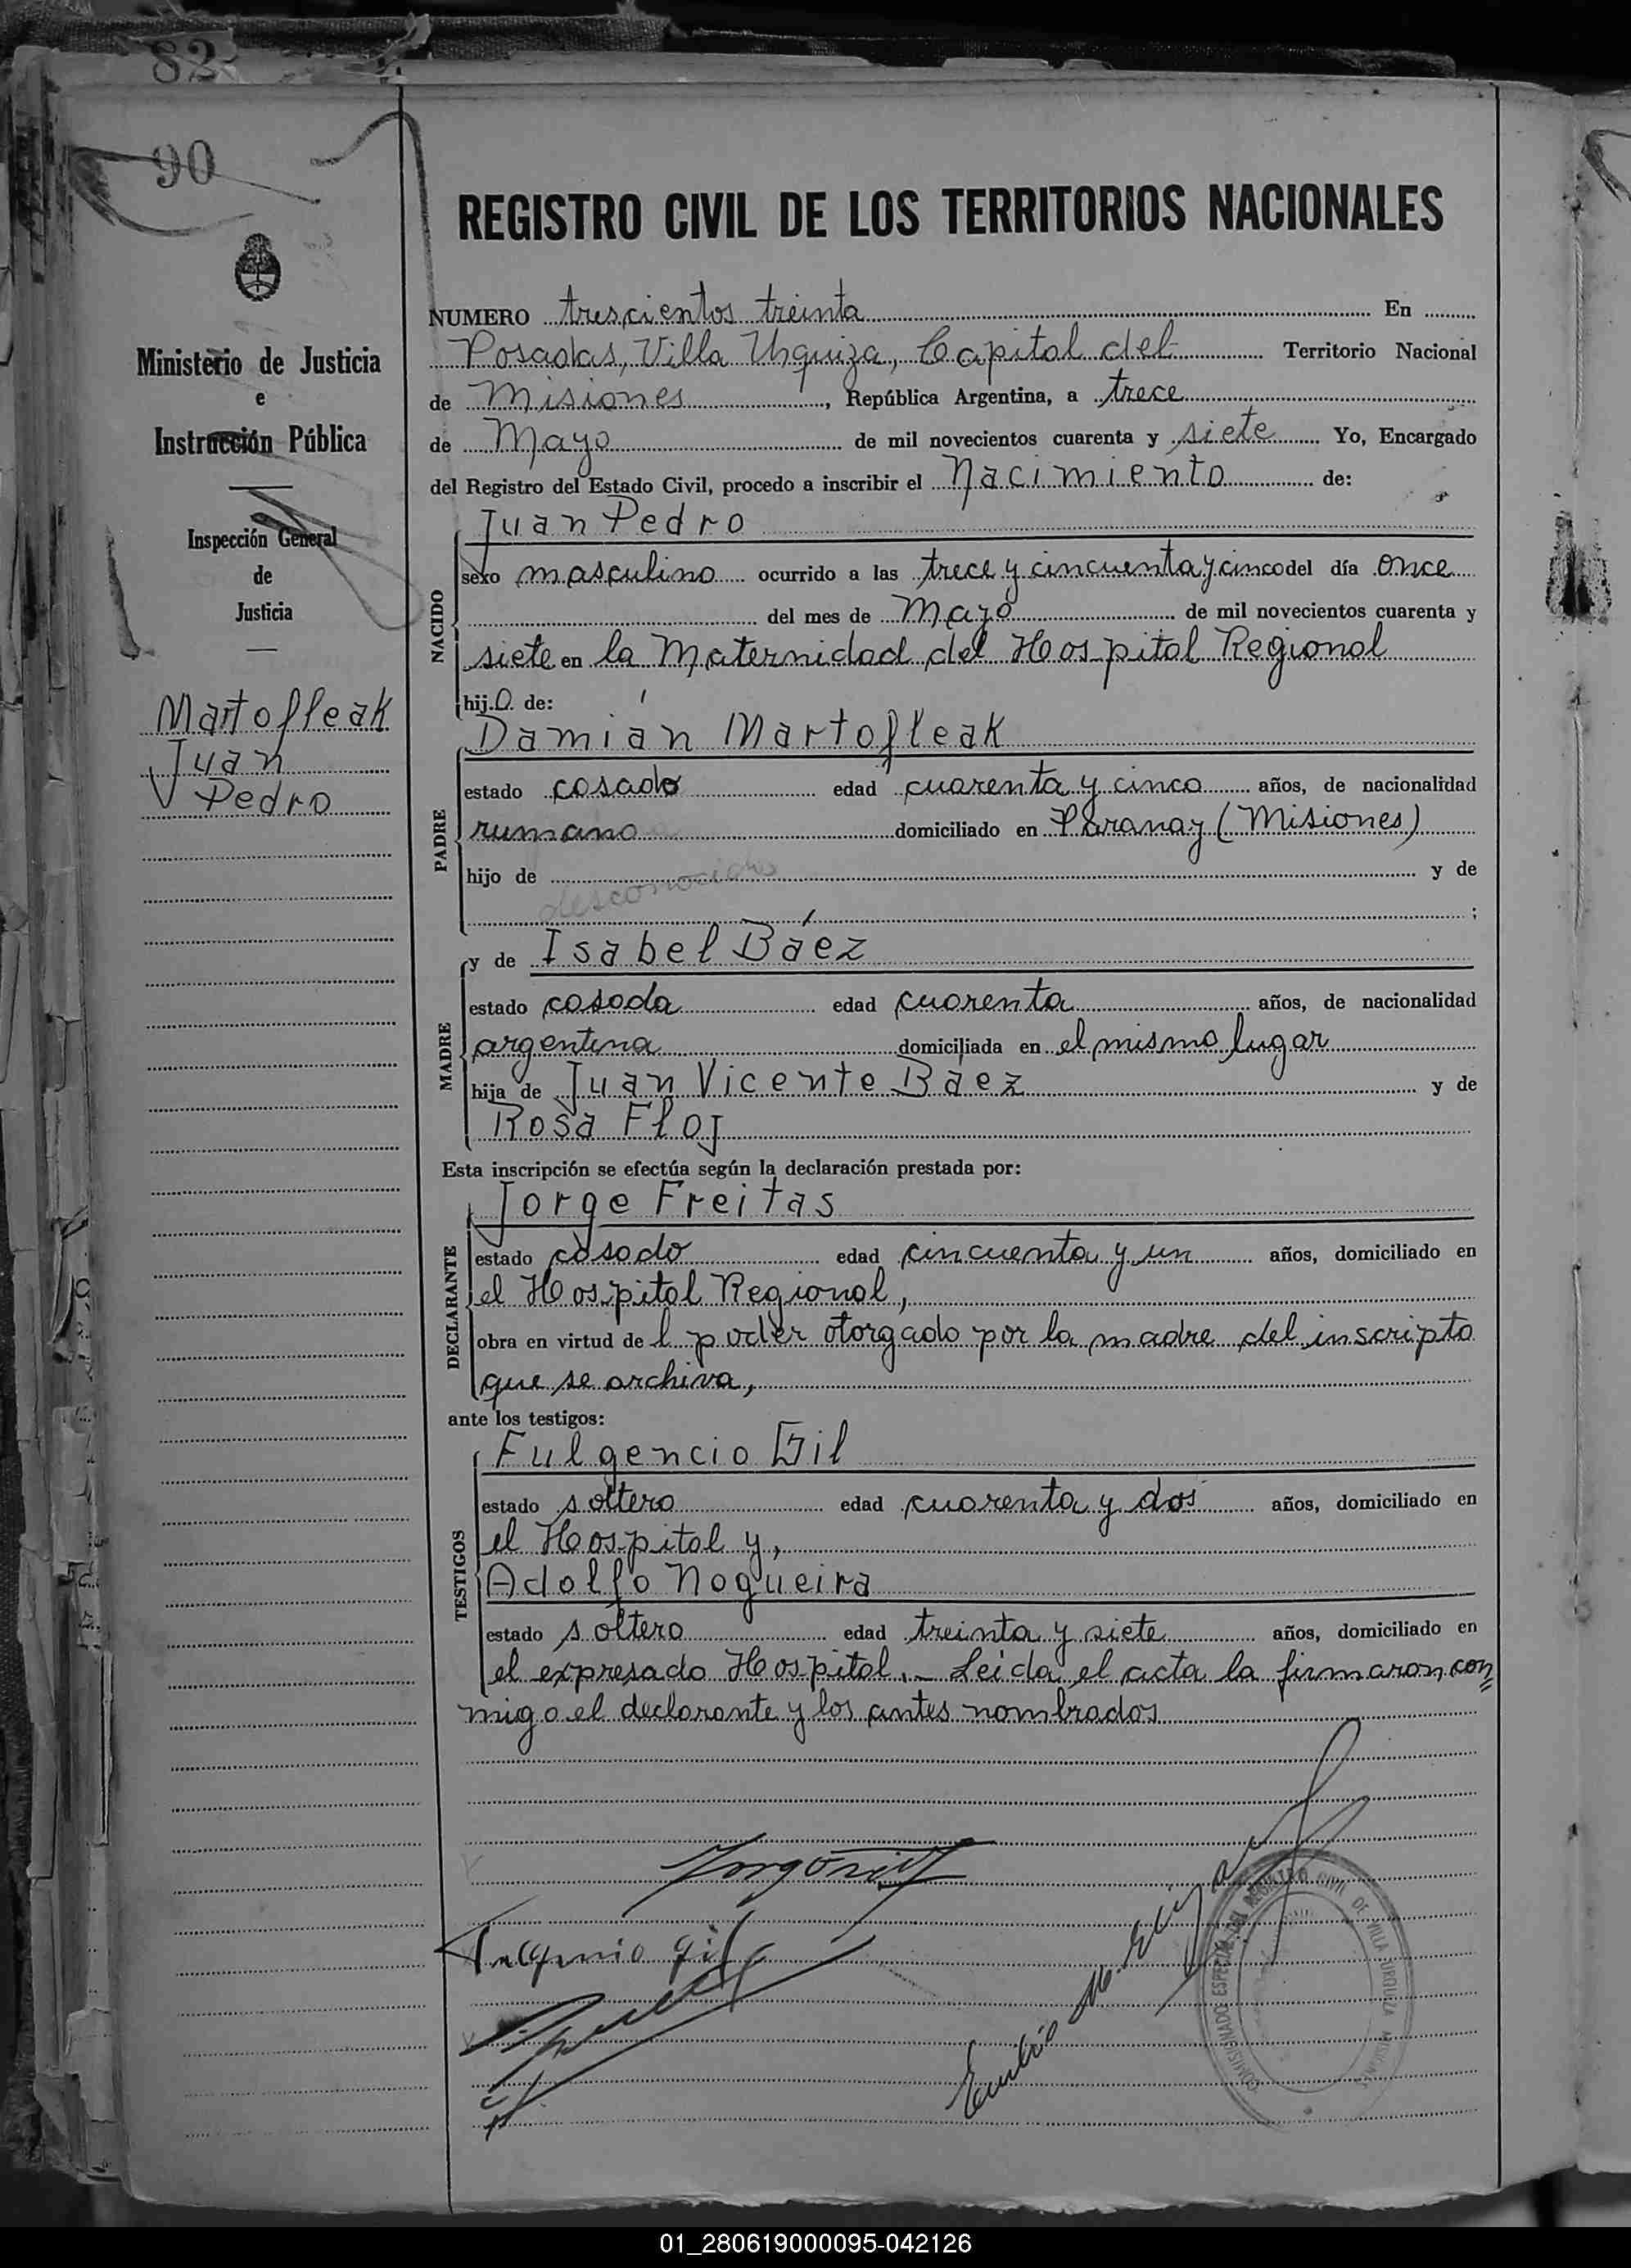 82
90
REGISTRO CIVIL DE LOS TERRITORIOS NACIONALES
Ministerio de Justicia
e
Instrucción Pública
Inspección General
de
Justicia
Martofleak
Juan
Pedro
NUMERO trescientos treinta En
Posadas, Villa Urquiza, Capital del Territorio Nacional
de Misiones, República Argentina, a trece
de Mayo de mil novecientos cuarenta y siete Yo, Encargado
del Registro del Estado Civil, procedo a inscribir el Nacimiento de:
NACIDO
Juan Pedro
sexo masculino ocurrido a las trece y cincuenta y cinco del día once
del mes de Mayo de mil novecientos cuarenta y
siete en la Maternidad del Hospital Regional
hijo de:
PADRE
Damián Martofleak
estado casado edad cuarenta y cinco años, de nacionalidad
rumano domiciliado en Paranay (Misiones)
hijo de desconocidos y de
;
MADRE
y de Isabel Báez
estado casada edad cuarenta años, de nacionalidad
argentina domiciliada en el mismo lugar
hija de Juan Vicente Baez y de
Rosa Floj
Esta inscripción se efectúa según la declaración prestada por:
DECLARANTE
Jorge Freitas
estado casado edad cincuenta y un años, domiciliado en
el Hospital Regional,
obra en virtud del poder otorgado por la madre del inscripto
que se archiva,
ante los testigos:
TESTIGOS
Fulgencio Gil
estado soltero edad cuarenta y dos años, domiciliado en
el Hospital y,
Adolfo Nogueira
estado soltero edad treinta y siete años, domiciliado en
el expresado Hospital.- Leida el acta la firmaron con=
migo el declarante y los antes nombrados
Fulgencio Gil
Emilio M.
COMISIONADO ESPECIAL DEL REGISTRO CIVIL DE VILLA URQUIZA MISIONES
01_280619000095-042126